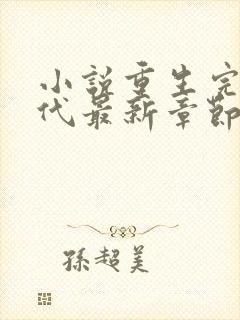 小說重生完
代最新章節
孫超美